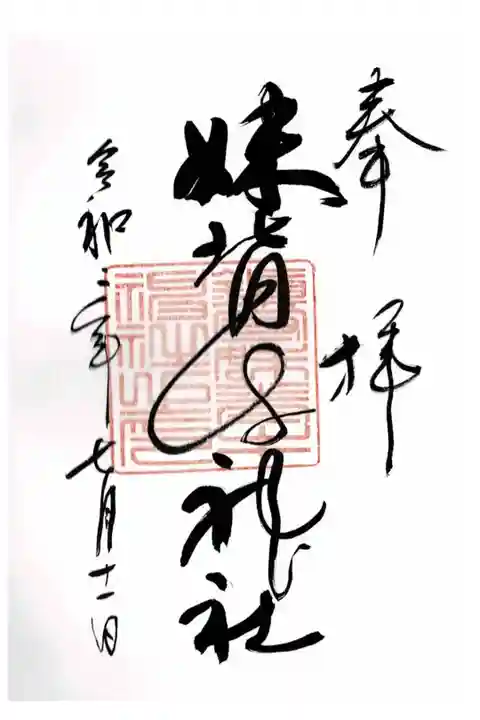 奉拝
妹背牛神社
令和二年七月十一日